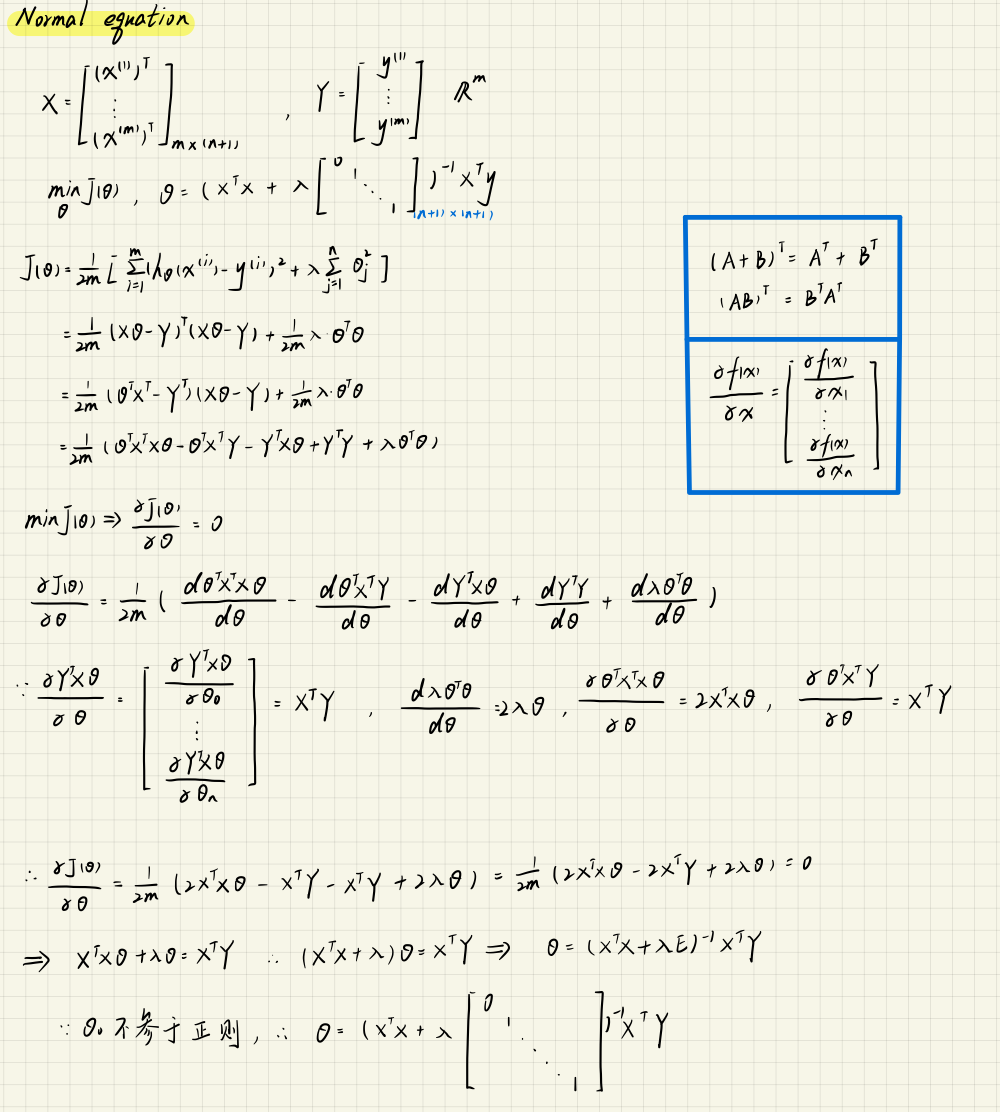 Normal equation
X = [ (x^(1))^T ⋮ (x^(m))^T ]_{m×(n+1)} , Y = [ y^(1) ⋮ y^(m) ] ℝ^m
min_θ J(θ) , θ = (X^T X + λ [ 0 1 ⋱ 1 ]_{(n+1)×(n+1)} )^{-1} X^T y
J(θ) = 1/2m [ Σ_{i=1}^{m} (h_θ(x^(i)) - y^(i))^2 + λ Σ_{j=1}^{n} θ_j^2 ]
= 1/2m (Xθ - Y)^T (Xθ - Y) + 1/2m λ·θ^T θ
= 1/2m (θ^T X^T - Y^T)(Xθ - Y) + 1/2m λ·θ^T θ
= 1/2m (θ^T X^T Xθ - θ^T X^T Y - Y^T Xθ + Y^T Y + λθ^T θ)
(A+B)^T = A^T + B^T
(AB)^T = B^T A^T
∂f(x)/∂x = [ ∂f(x)/∂x_1 ⋮ ∂f(x)/∂x_n ]
min J(θ) ⇒ ∂J(θ)/∂θ = 0
∂J(θ)/∂θ = 1/2m ( dθ^T X^T Xθ/dθ - dθ^T X^T Y/dθ - dY^T Xθ/dθ + dY^T Y/dθ + dλθ^T θ/dθ )
∵ ∂Y^T Xθ/∂θ = [ ∂Y^T Xθ/∂θ_0 ⋮ ∂Y^T Xθ/∂θ_n ] = X^T Y , dλθ^T θ/dθ = 2λθ , ∂θ^T X^T Xθ/∂θ = 2X^T Xθ , ∂θ^T X^T Y/∂θ = X^T Y
∴ ∂J(θ)/∂θ = 1/2m (2X^T Xθ - X^T Y - X^T Y + 2λθ) = 1/2m (2X^T Xθ - 2X^T Y + 2λθ) = 0
⇒ X^T Xθ + λθ = X^T Y ∴ (X^T X + λ)θ = X^T Y ⇒ θ = (X^T X + λE)^{-1} X^T Y
∵ θ_0 不参于正则, ∴ θ = (X^T X + λ [ 0 1 ⋱ 1 ] )^{-1} X^T Y